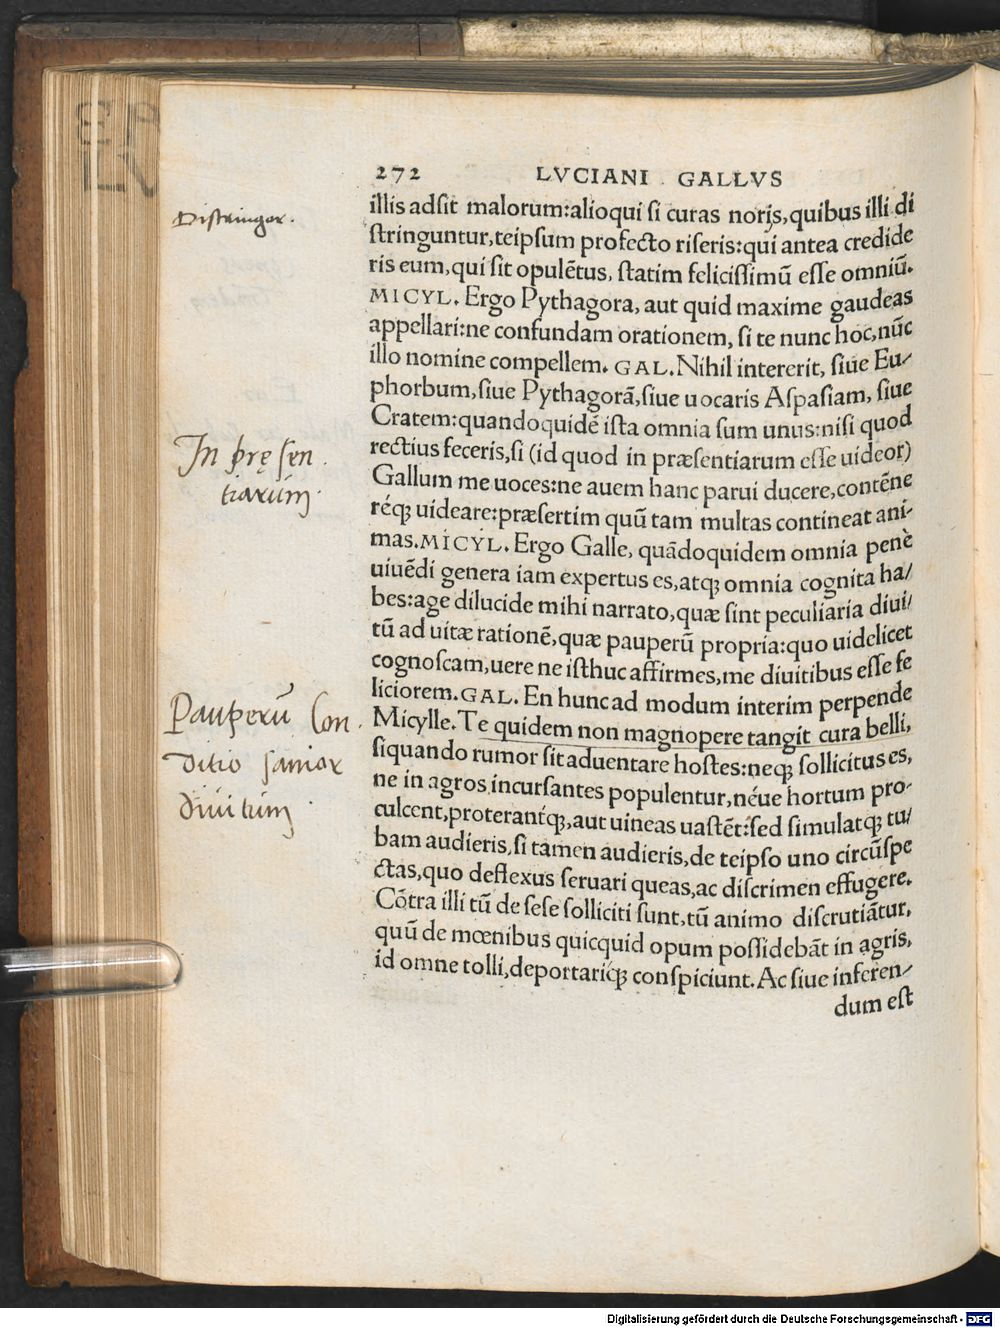 272 LVCIANI . GALLVS
illis adsit malorum:alioqui si curas noris,quibus illi di
stringuntur,teipsum profecto riseris:qui antea credide
ris eum,qui sit opulẽtus, statim felicissimũ esse omniũ.
MICYL. Ergo Pythagora, aut quid maxime gaudeas
appellari:ne confundam orationem, si te nunc hoc,nũc
illo nomine compellem. GAL. Nihil intererit, siue Eu-
phorbum,siue Pythagorã,siue uocaris Aspasiam, siue
Cratem:quandoquidẽ ista omnia sum unus:nisi quod
rectius feceris,si (id quod in præsentiarum esse uideor)
Gallum me uoces:ne auem hanc parui ducere,contẽne
réq; uideare:præsertim quũ tam multas contineat ani-
mas.MICYL. Ergo Galle, quãdoquidem omnia penè
uiuẽdi genera iam expertus es,atq; omnia cognita ha/
bes:age dilucide mihi narrato,quæ sint peculiaria diui/
tũ ad uitæ rationẽ,quæ pauperũ propria:quo uidelicet
cognoscam,uere ne isthuc affirmes,me diuitibus esse fe
liciorem.GAL. En hunc ad modum interim perpende
Micylle. Te quidem non magnopere tangit cura belli,
siquando rumor sit aduentare hostes:neq; sollicitus es,
ne in agros incursantes populentur,néue hortum pro-
culcent,proterantq;,aut uineas uastẽt:sed simulatq; tu/
bam audieris,si tamen audieris,de teipso uno circũspe
ctas,quo deflexus seruari queas,ac discrimen effugere.
Cõtra illi tũ de sese solliciti sunt,tũ animo discrutiãtur,
quũ de mœnibus quicquid opum possidebãt in agris,
id omne tolli,deportariq; conspiciunt. Ac siue inferen-
dum est
Distringor.
In pręsen
tiarum.
Pauperũ Con
ditio sanior
diuitum.
Digitalisierung gefördert durch die Deutsche Forschungsgemeinschaft - DFG